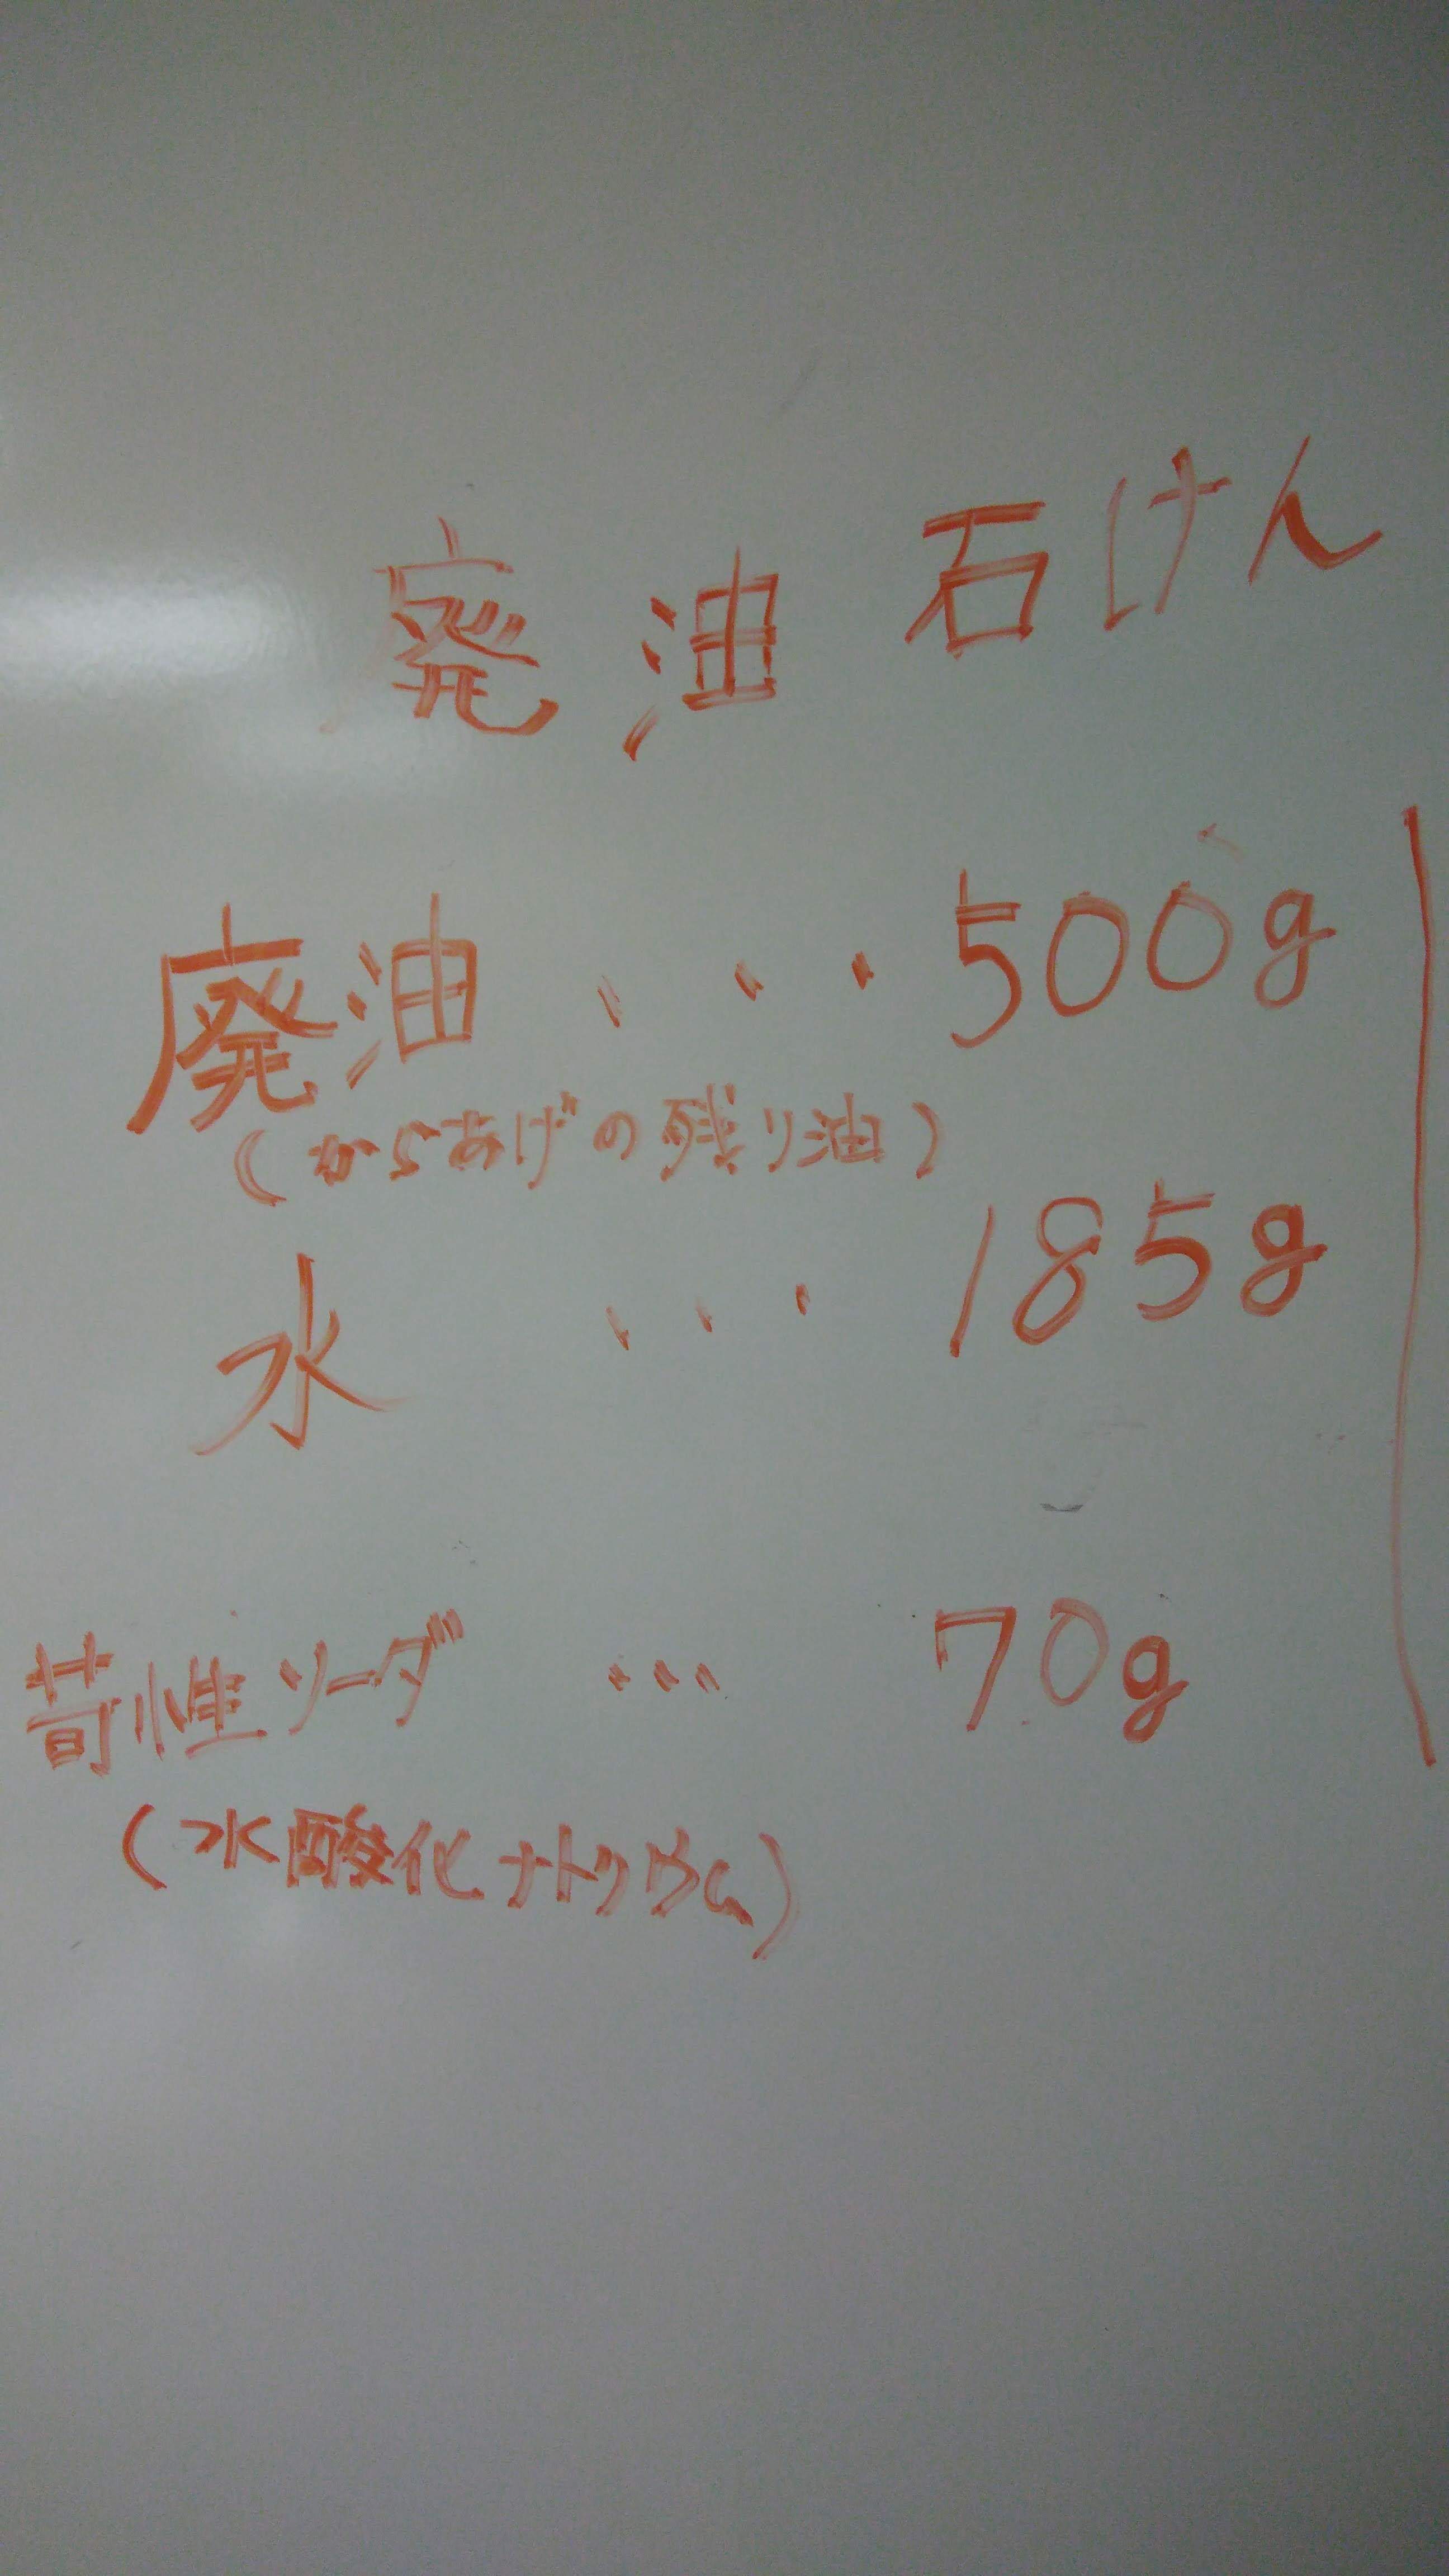 廃油石けん
廃油・・・500g
(からあげの残り油)
水・・・185g
苛性ソーダ・・・70g
(水酸化ナトリウム)